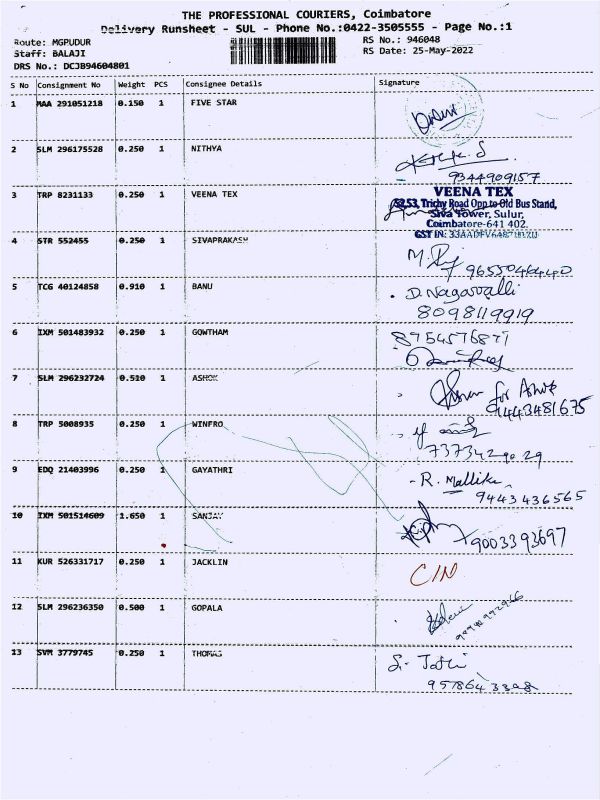 THE PROFESSIONAL COURIERS, Coimbatore
Delivery Runsheet - SUL - Phone No.:0422-3505555 - Page No.:1
Route: MGPUDUR
RS No.: 946048
Staff: BALAJI
RS Date: 25-May-2022
DRS No.: DCJB94604801
S No Consignment No Weight PCS Consignee Details Signature
1 MAA 291051218 0.150 1 FIVE STAR
2 SLM 296175528 0.250 1 NITHYA
9344909157
3 TRP 8231133 0.250 1 VEENA TEX
VEENA TEX
52,53, Trichy Road Opp to Old Bus Stand,
Siva Tower, Sulur,
Coimbatore-641 402.
GST IN:
4 STR 552455 0.250 1 SIVAPRAKASH
5 TCG 40124858 0.910 1 BANU
D. Nagavalli
8098119919
6 IXM 501483932 0.250 1 GOWTHAM
7 SLM 296232724 0.510 1 ASHOK
for Ashok
9443481675
8 TRP 5008935 0.250 1 WINFRO
9 EDQ 21403996 0.250 1 GAYATHRI
- R. Mallika
9443436565
10 IXM 501514609 1.650 1 SANJAY
9003393697
11 KUR 526331717 0.250 1 JACKLIN
C/N
12 SLM 296236350 0.500 1 GOPALA
13 SVM 3779745 0.250 1 THOMAS
9578643398